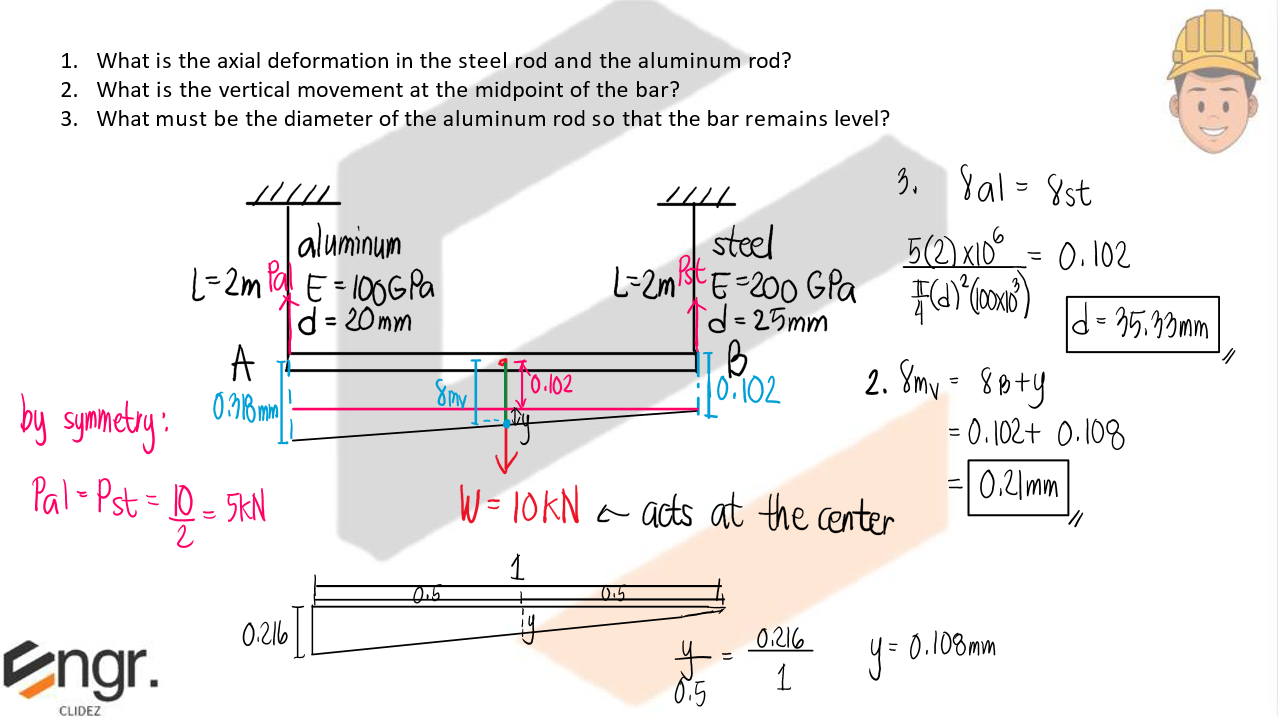 1. What is the axial deformation in the steel rod and the aluminum rod?
2. What is the vertical movement at the midpoint of the bar?
3. What must be the diameter of the aluminum rod so that the bar remains level?
aluminum
L=2m Pal E=100GPa
d=20mm
steel
L=2m Pst E=200 GPa
d=25mm
A
B
0.318mm
δmv
0.102
y
0.102
by symmetry:
Pal=Pst=10/2=5kN
W=10KN ← acts at the center
1
0.5 0.5
0.216
y
y/0.5 = 0.216/1 y=0.108mm
3. δal = δst
5(2)x10⁶ / π/4(d)²(100x10³) = 0.102
d=35.33mm
2. δmv = δB+y
=0.102+ 0.108
= 0.21mm
Engr.
CLIDEZ